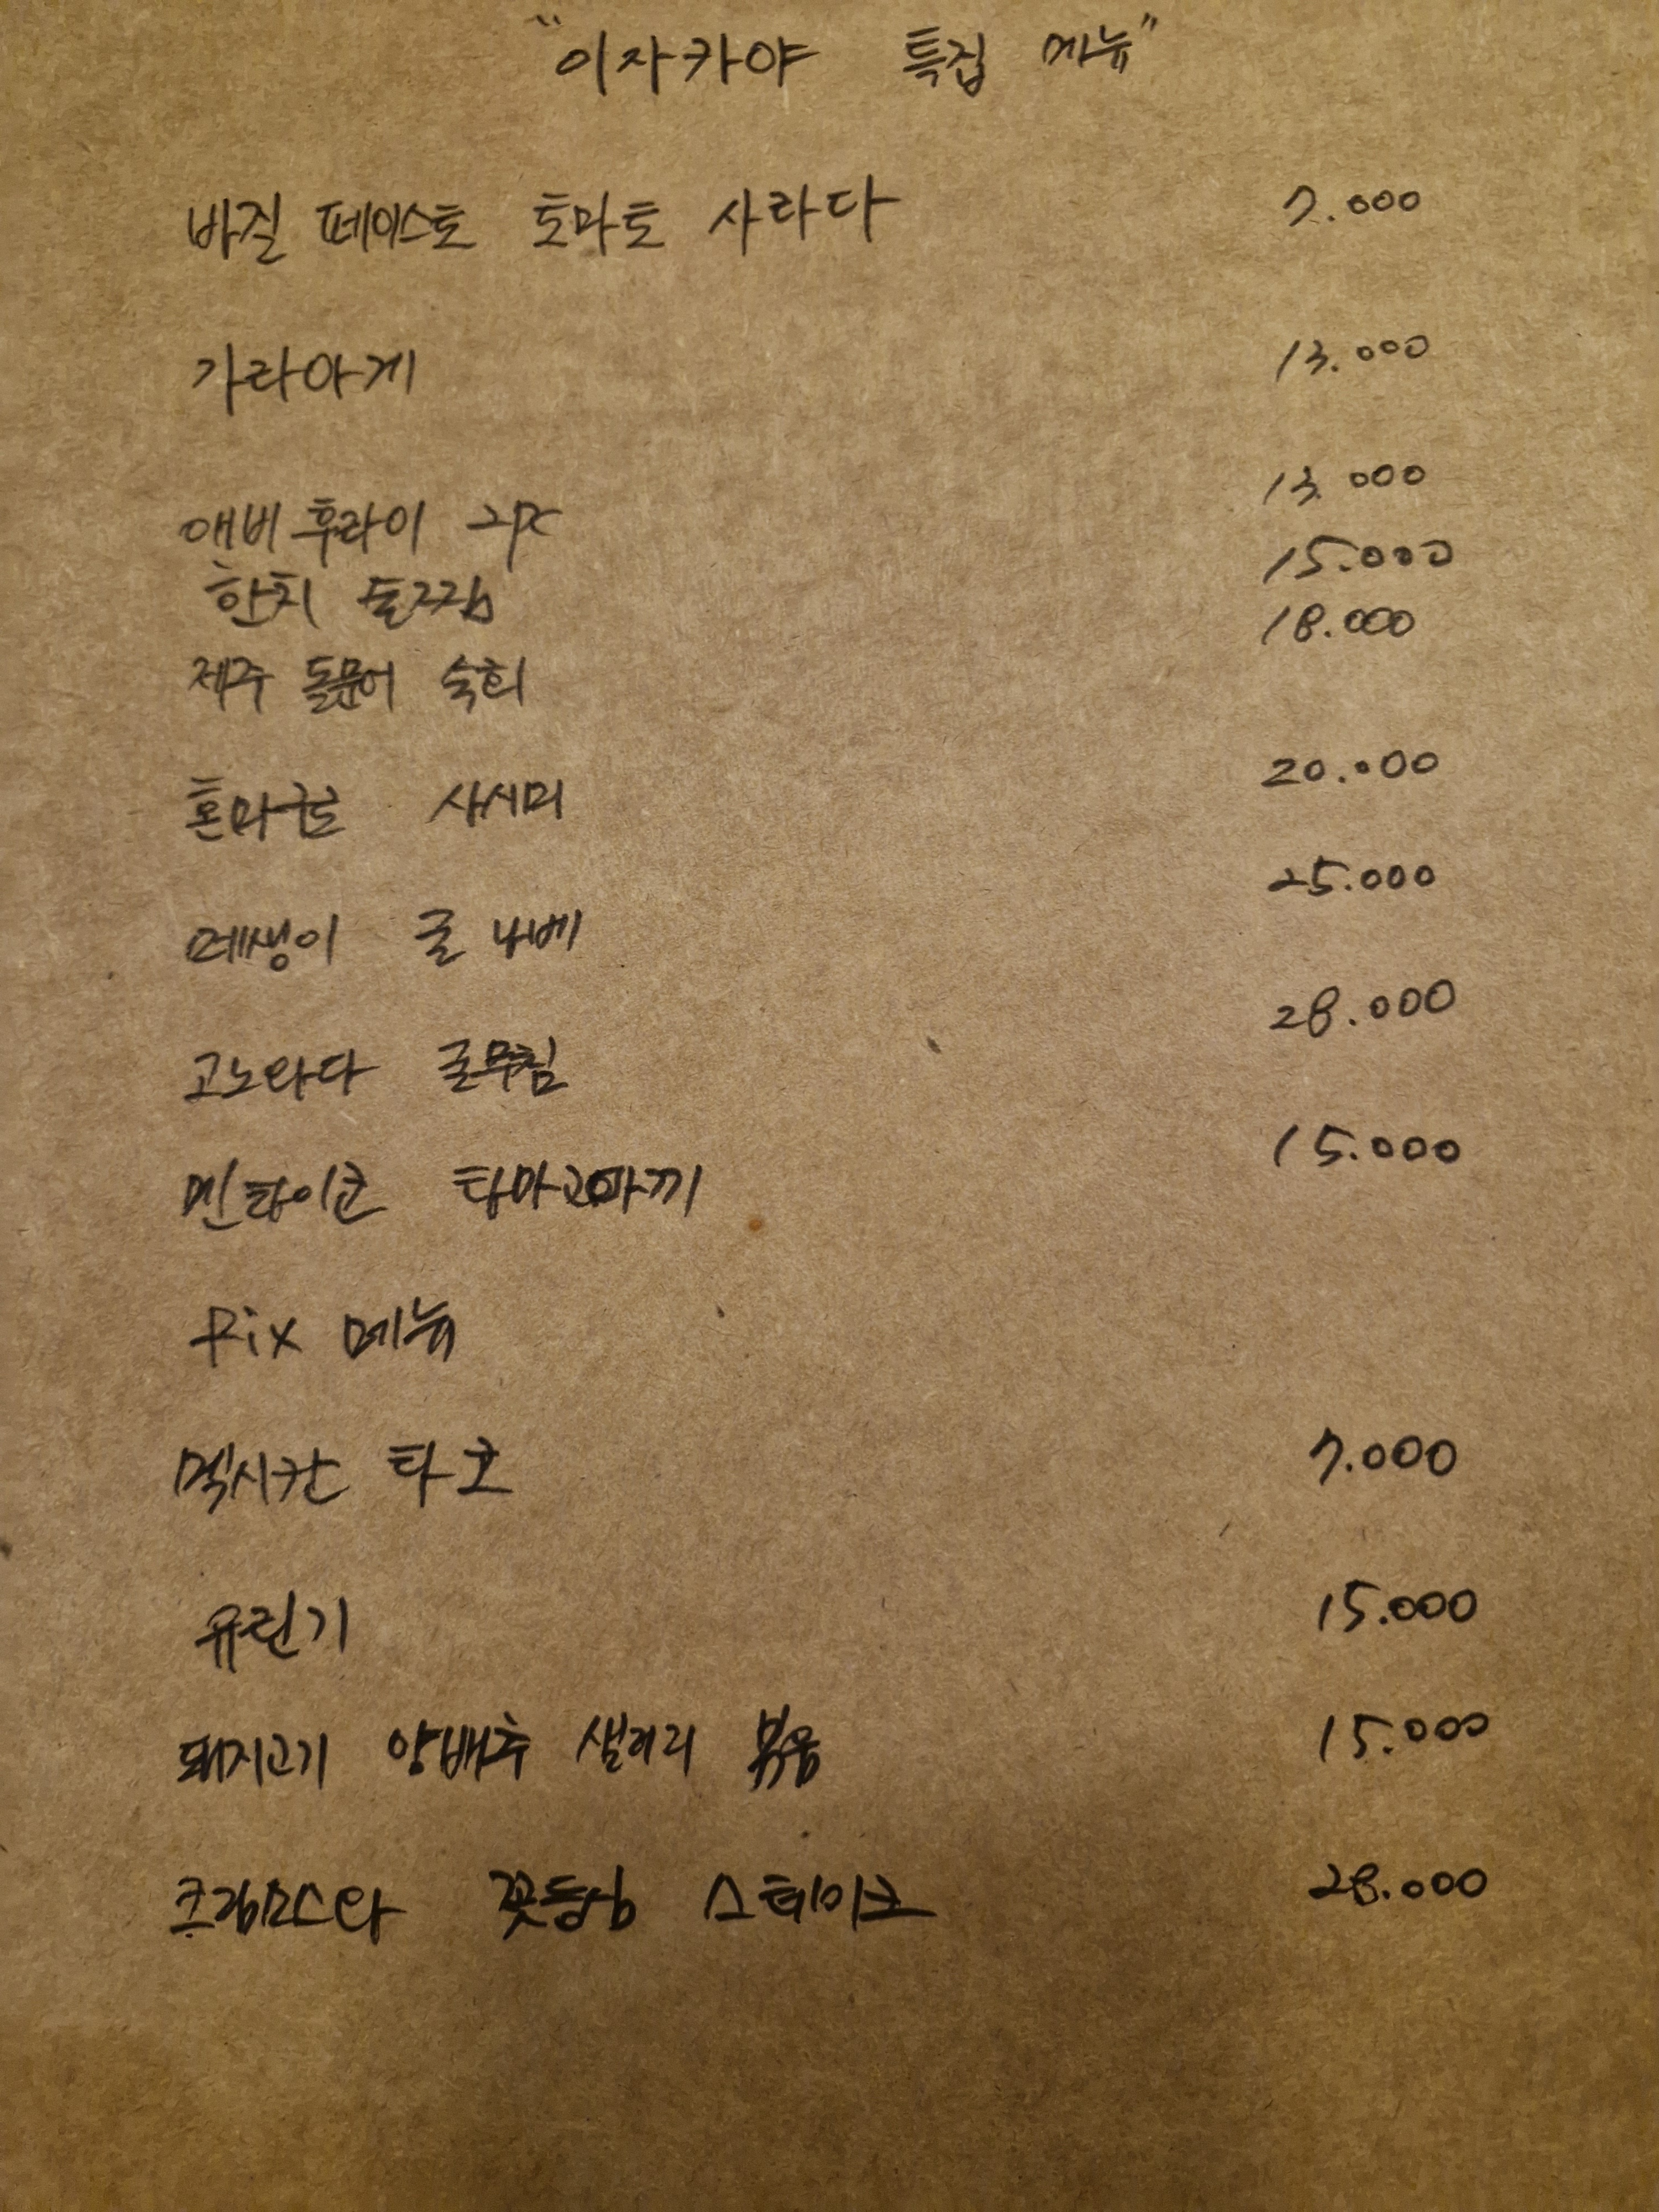 "이자카야 특집 메뉴"
바질 페이스토 토마토 사라다 7.000
가라아게 13.000
애비후라이 2pc 13.000
한치 통구이 15.000
제주 돌문어 숙회 18.000
혼마구로 사시미 20.000
메생이 굴 나베 25.000
고노와다 굴무침 28.000
멘타이코 타마고마끼 15.000
Fix 메뉴
멕시칸 타코 7.000
유린기 15.000
돼지고기 양배추 샐러리 볶음 15.000
크림소스와 꽃등심 스테이크 28.000